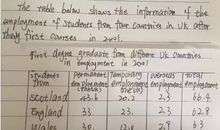 The table below shows the information of the
employment of students from four countries in UK after
their first courses in 2001.
First degree graduate from different UK countries
in employment in 2001
Students from permanent employment temporary employment overseas employment total employment
Scotland 43.6 20.2 2.3 66.4
England 33 23. 2.3
Wales 2.9